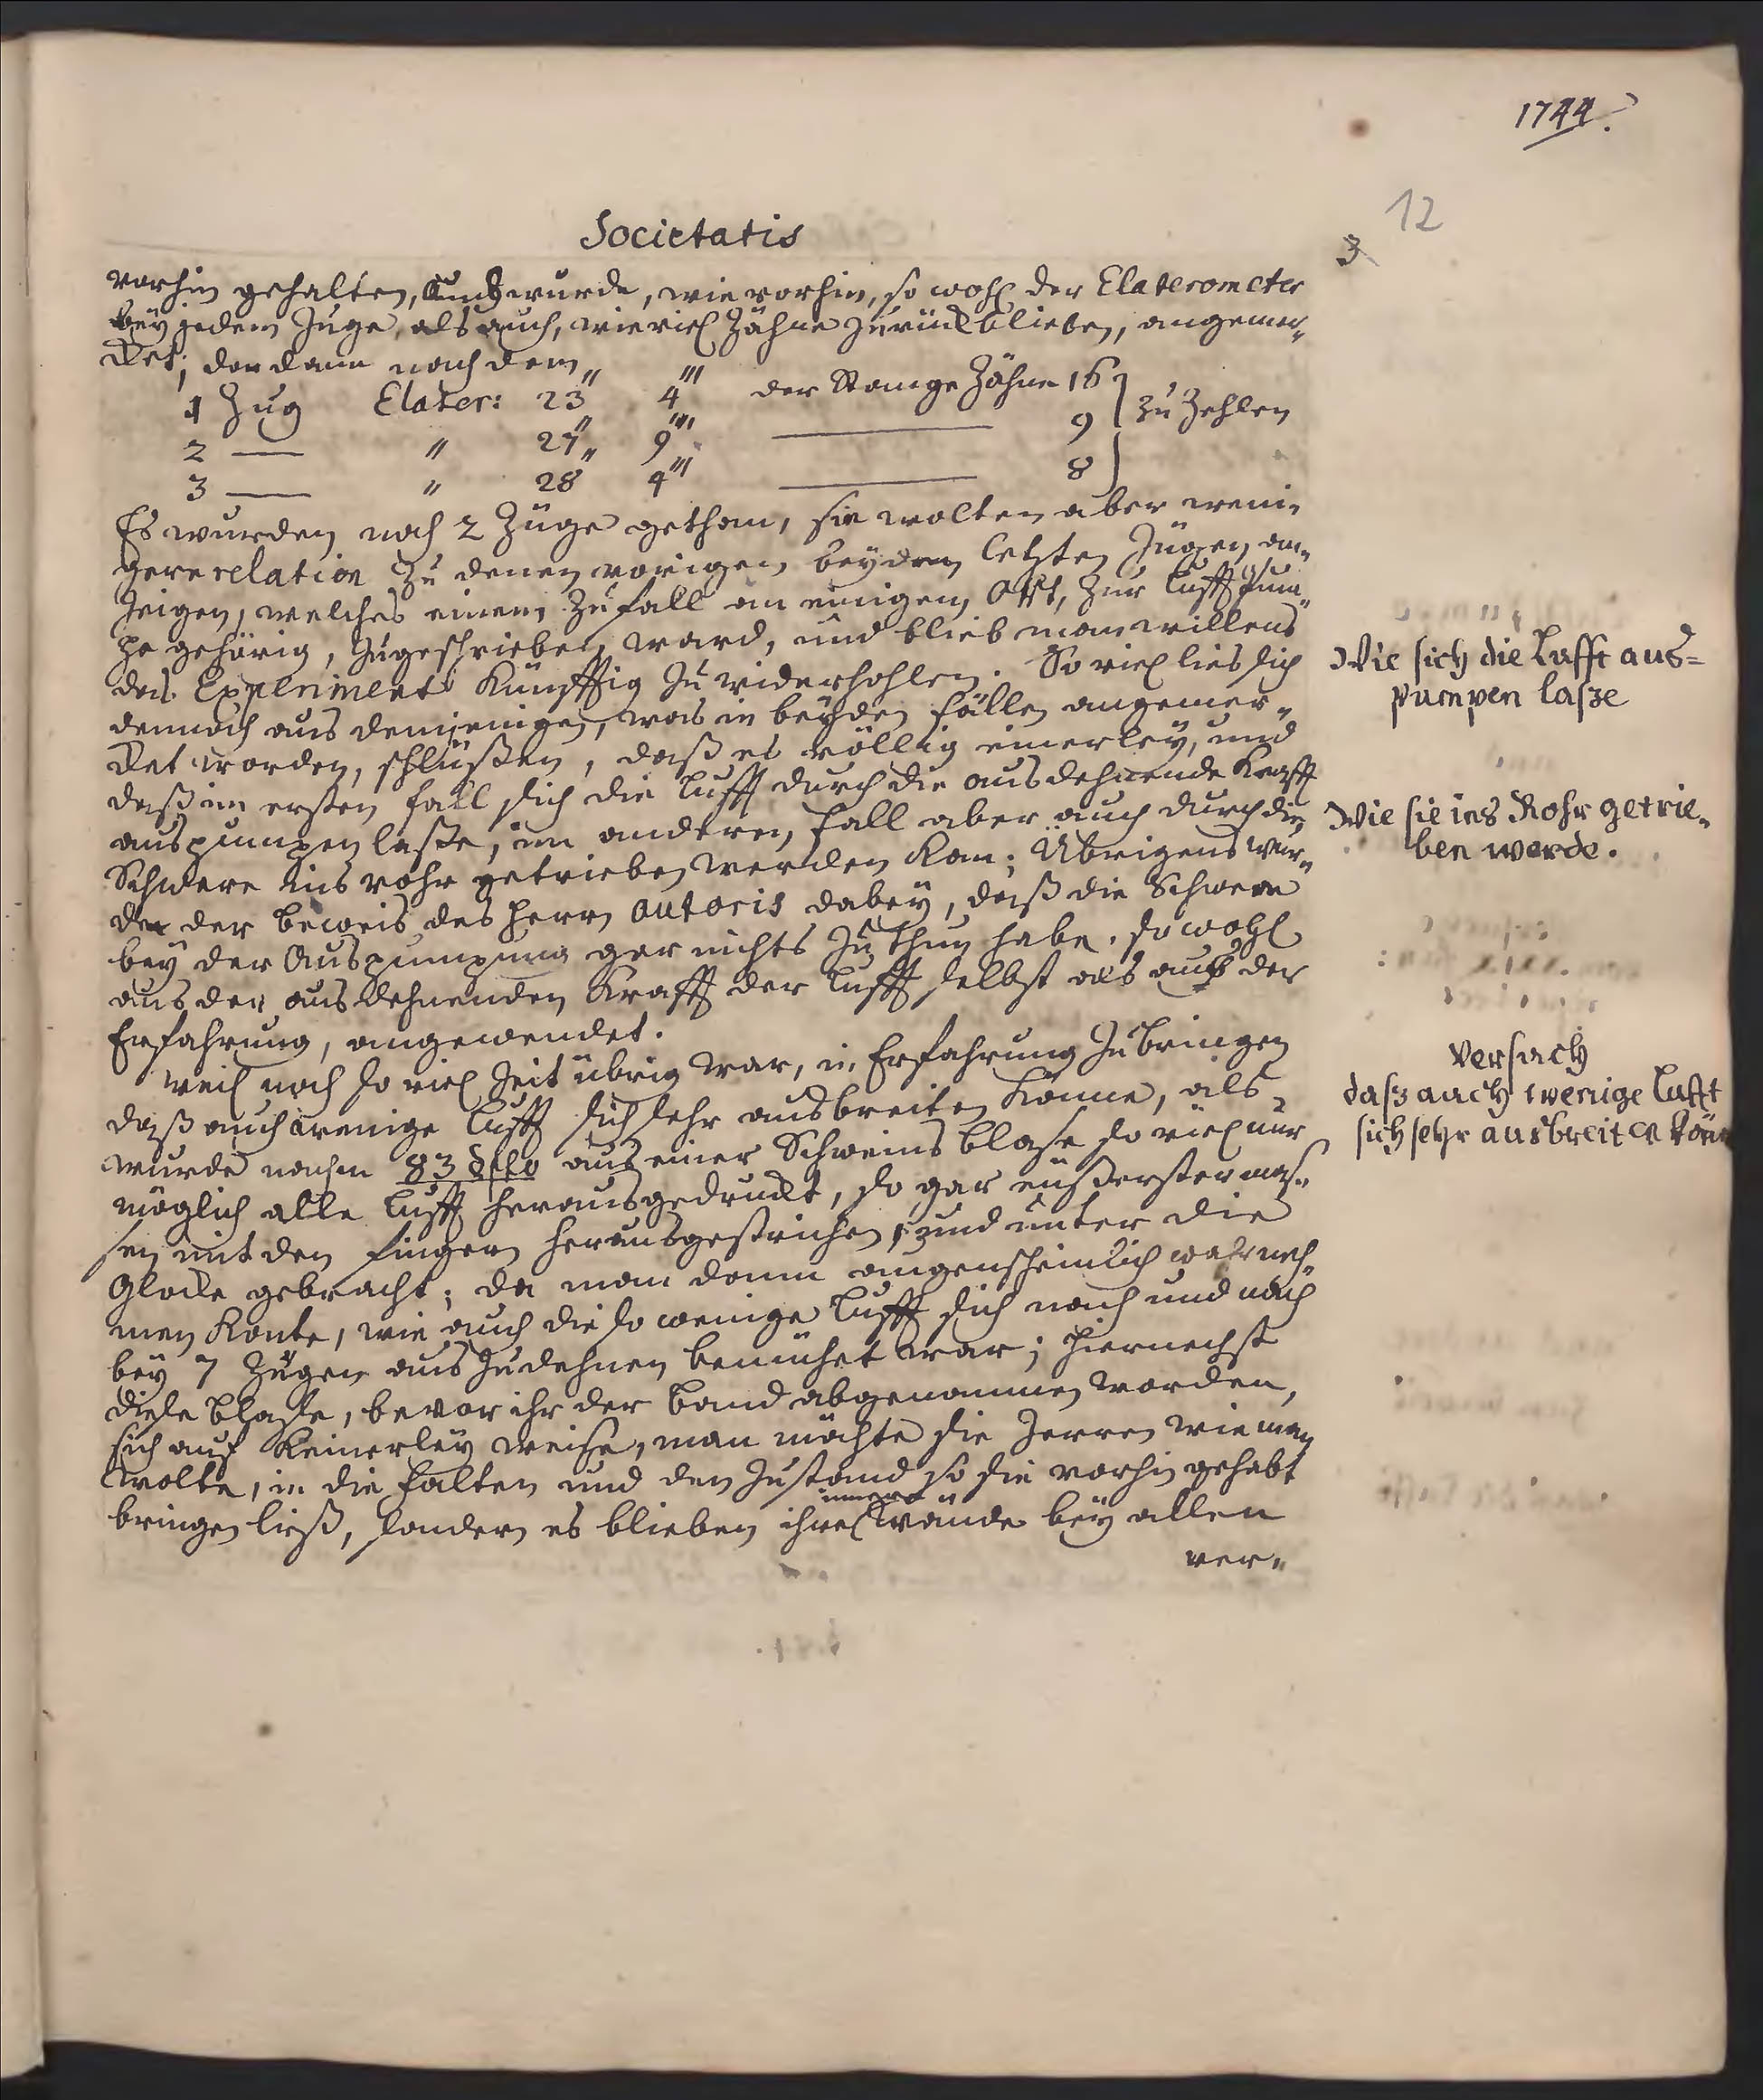 1744.
12
3
Societatis
vorhin gehalten, und wurde, wie vorhin, so wohl der Elaterometer
bey jedem Zuge, als auch, wie viel Zähne zurück blieben, angemer„
cket; da dann nach dem
1 Zug Elater: 23" 4"' der Stange Zähne 16 } zu zehlen
2 — " 27" 9"' — 9
3 — " 28" 4"' — 8
Es wurden noch 2 Züge gethan, sie wolten aber weni„
gere relation zu denen vorigen beyden letzten Zügen an„
zeigen, welches einem Zufall an einigem Ort, zur Lufft Pum„
pe gehörig, zugeschrieben ward, und blieb man willens
das Experiment künfftig zu widerhohlen. So viel lies sich
dennoch aus demjenigen, was in beyden fällen angemer„
cket worden, schlüßen, daß es völlig einerley, und
daß im ersten fall sich die Lufft durch die ausdehnende Krafft
auspumpen laße, im anderen fall aber auch durch die
Schwere ins rohr getrieben werden kan; Übrigens wur„
de der beweis des Herrn autoris dabey, daß die Schwere
bey der Auspumpung gar nichts zu thun habe, so wohl
aus der ausdehnenden Krafft der Lufft selbst als auß der
Erfahrung, angewendet.
Weil noch so viel Zeit übrig war, in Erfahrung zu bringen
daß auch wenige Lufft sich sehr ausbreiten könne, als
wurde nach 83 aus einer Schweins blase so viel nur
möglich alle Lufft herausgedruckt, so gar eußerster mas„
sen mit den fingern herausgestrichen, und unter die
Glocke gebracht; da man dann augenscheinlich wahrneh„
men konte, wie auch die so wenige Lufft sich nach und nach
bey 7 Zügen aus zudehnen bemühet war; hiernechst
diese blase, bevor ihr der band abgenommen worden,
sich auf keinerley weise, man möchte sie zerren wie man
wolte, in die falten und den Zustand so sie vorhin gehabt
bringen ließ, sondern es blieben ihre innere wände bey allen
ver„
Wie sich die Lufft aus=
pumpen lasze
Wie sie ins Rohr getrie„
ben werde.
Versuch
dasz auch wenige Lufft
sich sehr ausbreiten kön